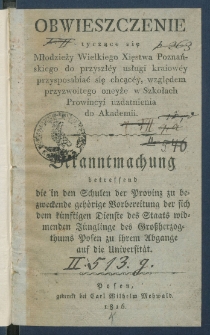 OBWIESZCZENIE
tyczące się
Młodzieży Wielkiego Xięstwa Poznań-
skiego do przyszłéy usługi kraiowéy
przysposabiać się chcącéy, względem
przyzwoitego onéyże w Szkołach
Prowincyi uzdatnienia
do Akademii.
Bekanntmachung
betreffend
die in den Schulen der Provinz zu be-
zweckende gehörige Vorbereitung der sich
dem künftigen Dienste des Staats wid-
menden Jünglinge des Großherzog-
thums Posen zu ihrem Abgange
auf die Universität.
II. 513. g.
Posen,
gedruckt bei Carl Wilhelm Mehwald.
1816.